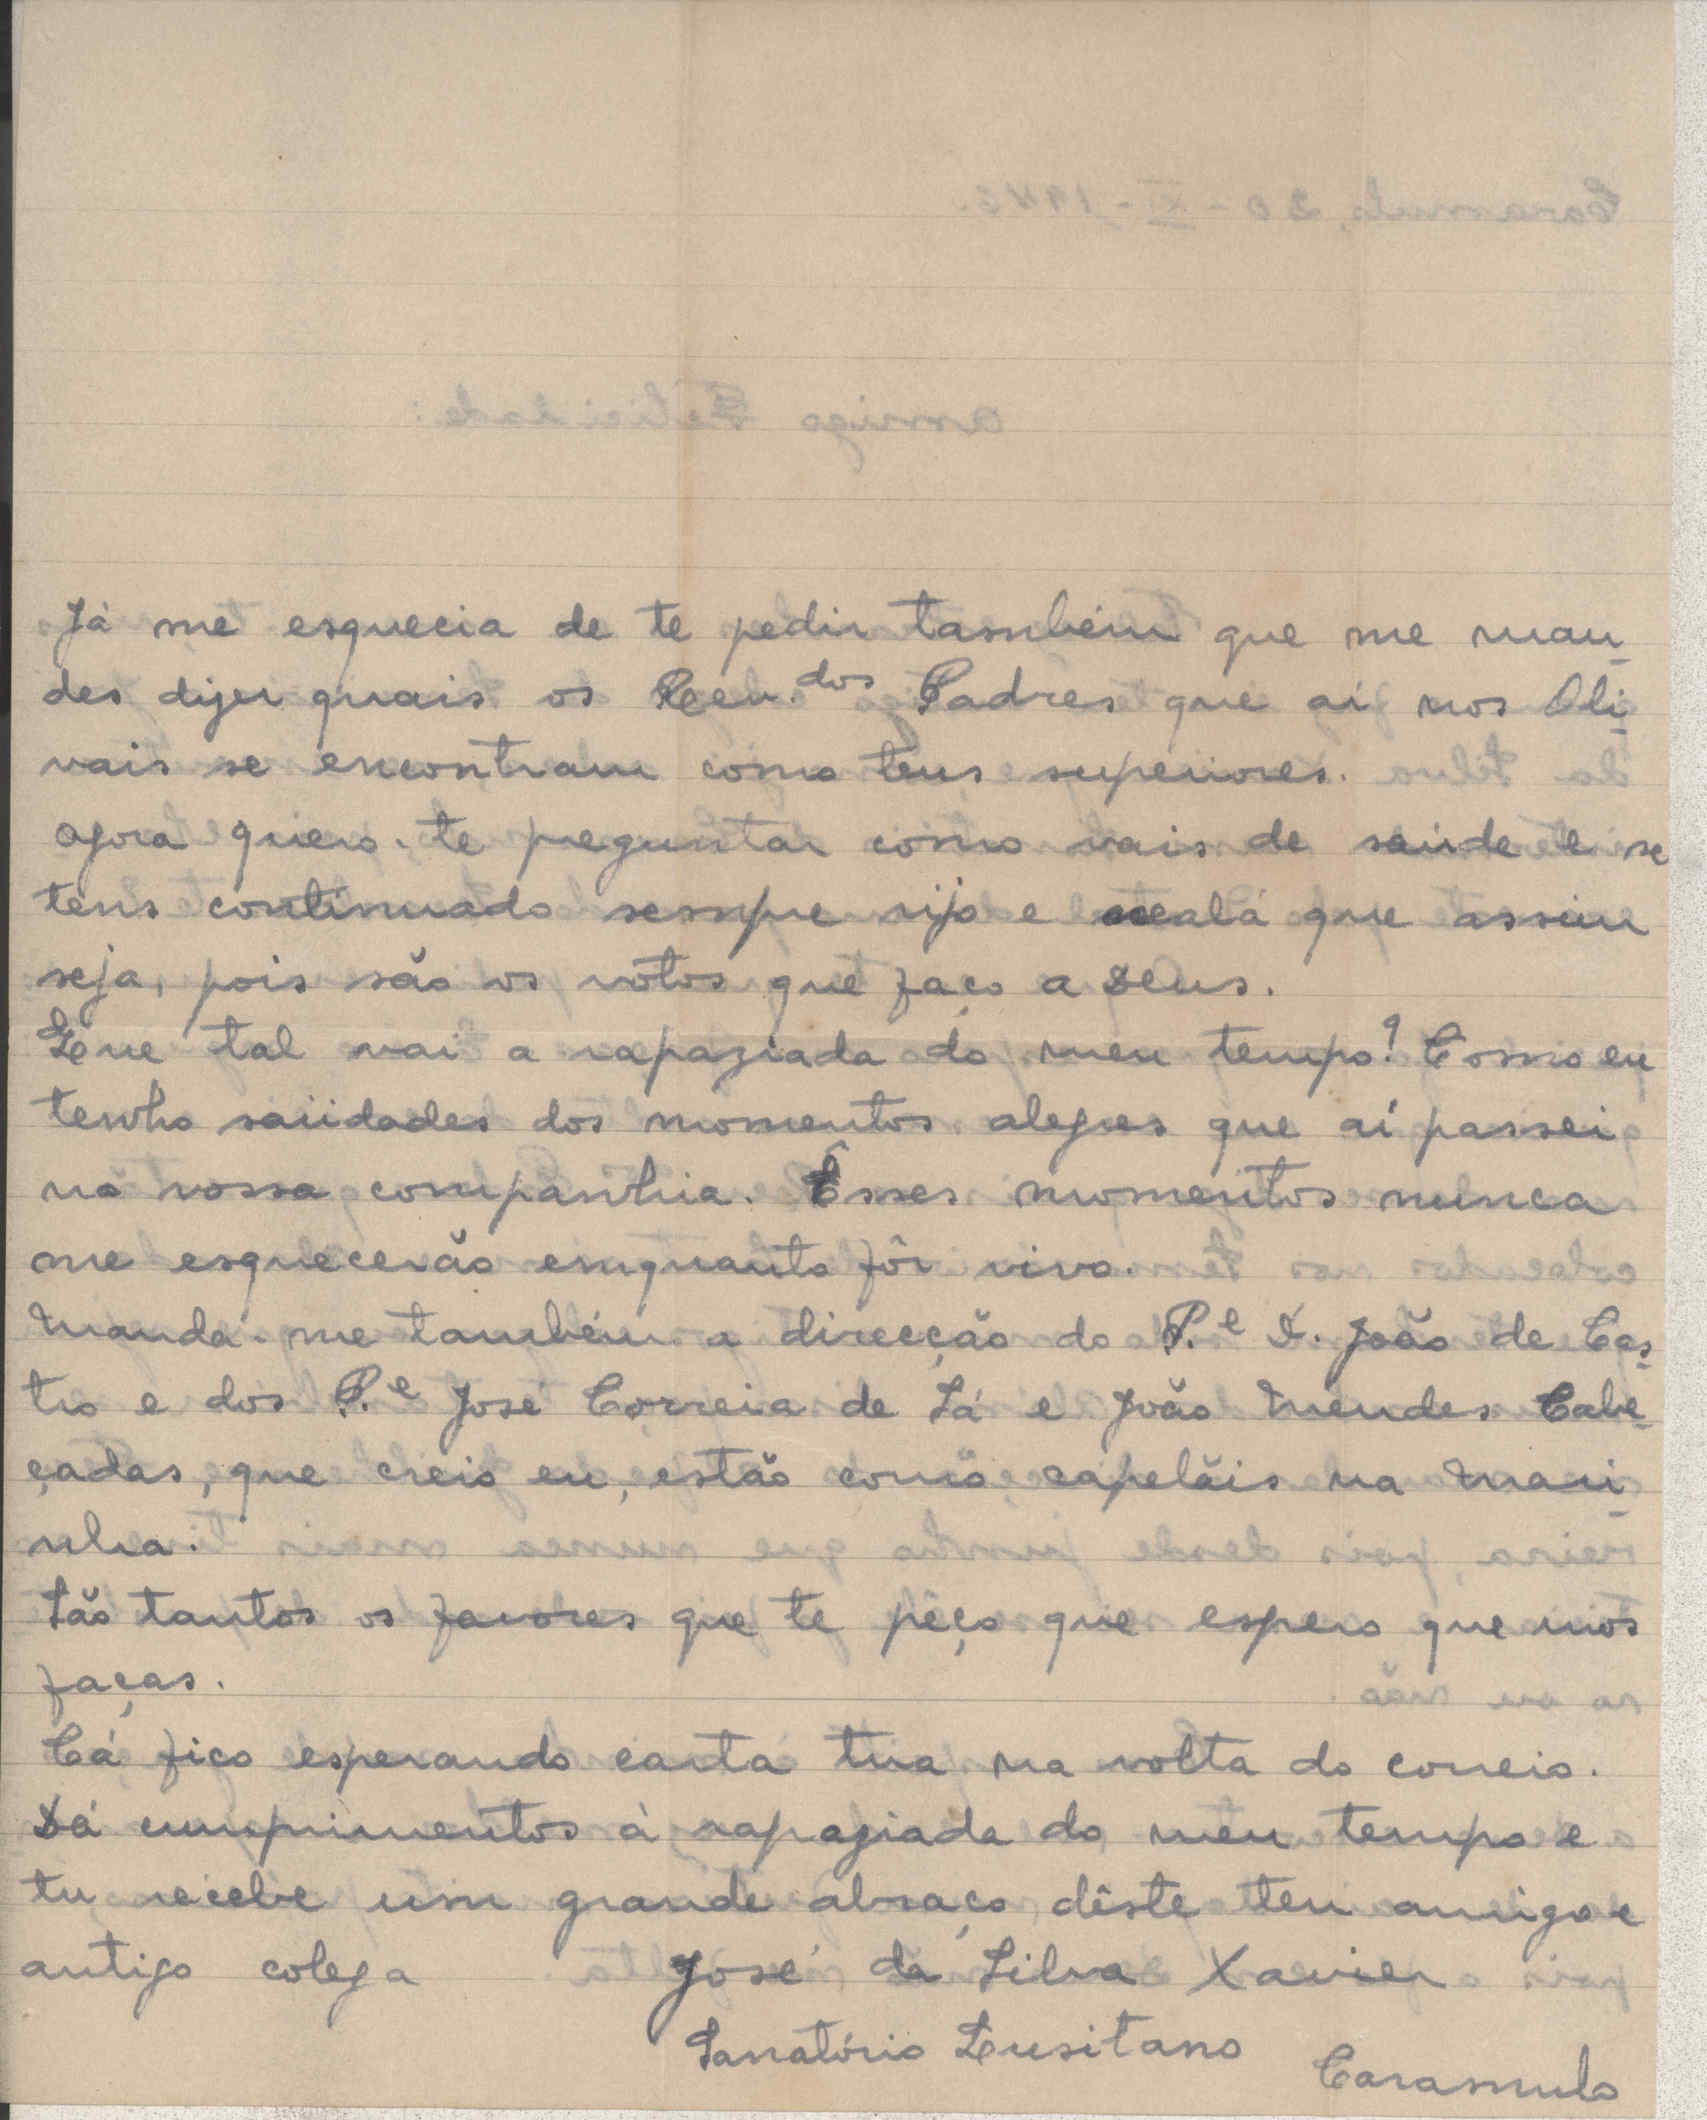 Já me esquecia de te pedir também que me man-
des dizer quais os Reu.dos Padres que aí nos Oli-
vais se encontram como teus superiores.
Agora quero-te preguntar como vais de saúde e se
tens continuado sempre rijo e oxalá que assim
seja, pois são os votos que faço a Deus.
Que tal vai a rapaziada do meu tempo? Como eu
tenho saüdades dos momentos alegres que aí passei
na vossa companhia. Êsses momentos nunca
me esquecerão emquanto fôr vivo.
Manda-me também a direcção do P.e D. João de Cas-
tro e dos P.e José Correia de Sá e João Mendes Cabe-
çadas, que creio eu, estão como capelãis na Mari-
nha.
São tantos os favores que te peço que espero que mos
faças.
Cá fico esperando carta tua na volta do correio.
Dá cumprimentos à rapaziada do meu tempo e
tu recebe um grande abraço dêste teu amigo e
antigo colega José da Silva Xavier
Sanatório Lusitano Caramulo